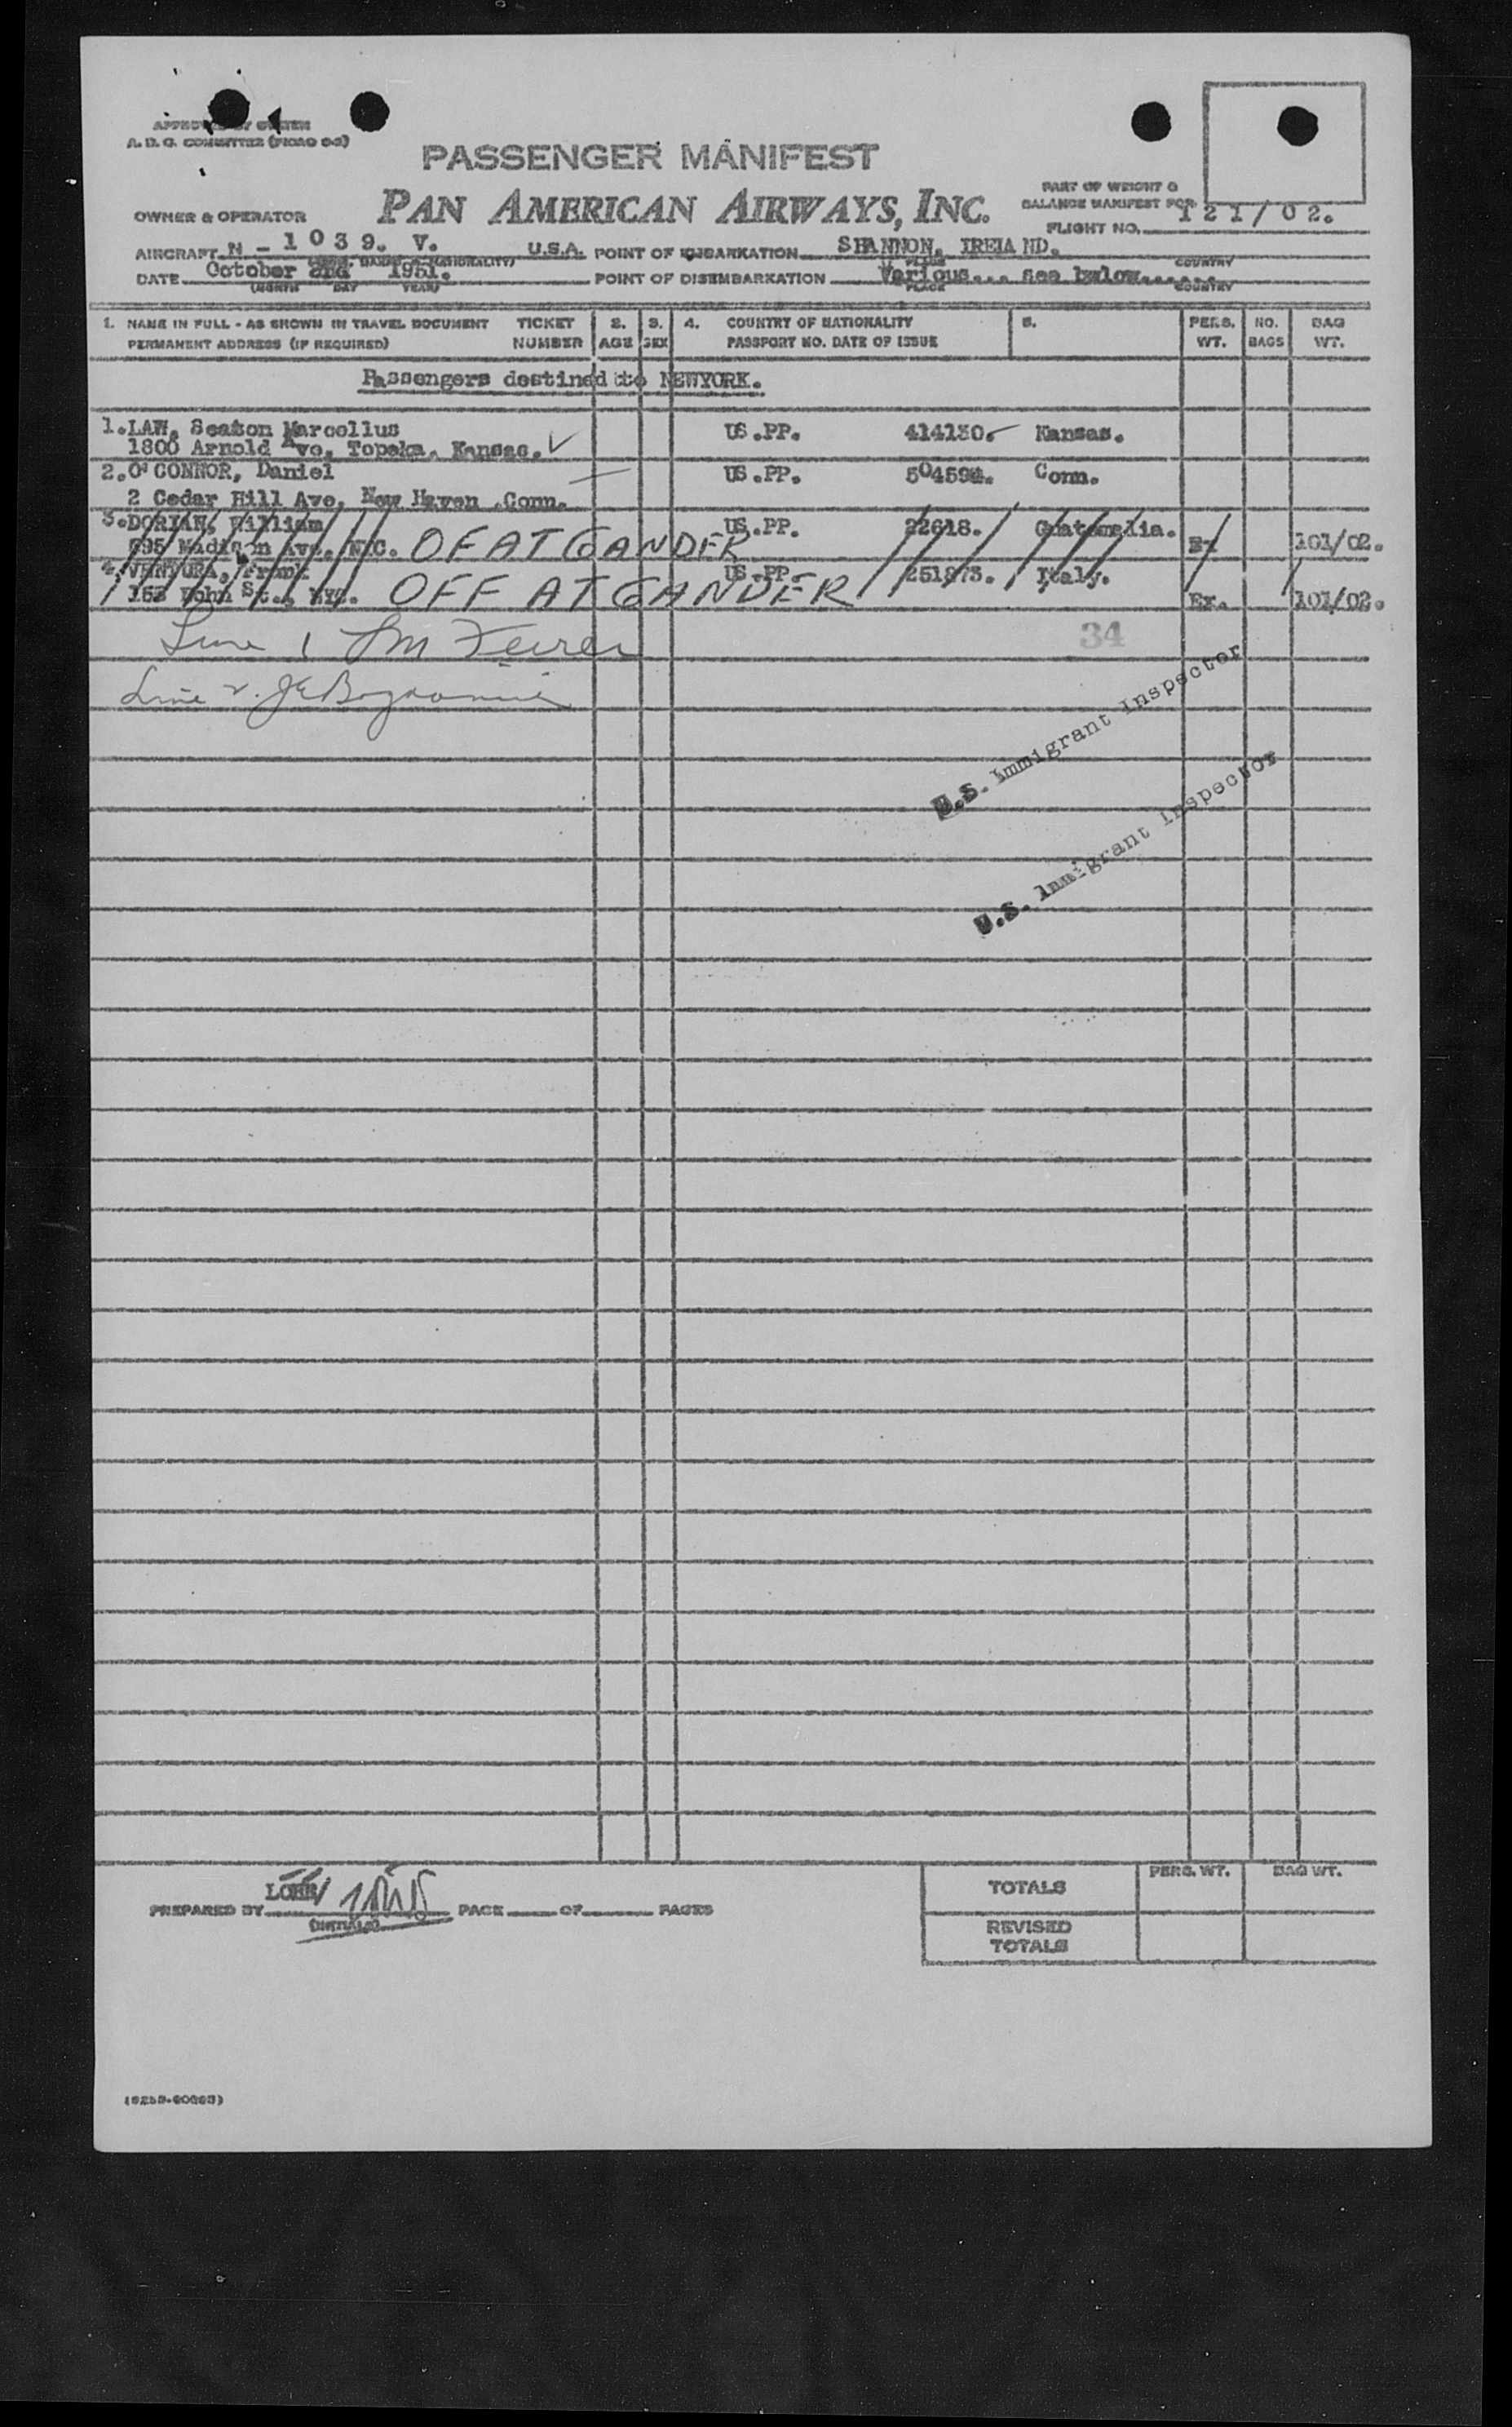 APPROVED BY SYSTEM
A. D. G. COMMITTEE
PASSENGER MANIFEST
PAN AMERICAN AIRWAYS, INC.
PART OF WEIGHT &
BALANCE MANIFEST FOR
OWNER & OPERATOR
FLIGHT NO. 121/02.
AIRCRAFT N - 1039. V. U.S.A. POINT OF EMBARKATION SHANNON, IRELAND.
PLACE COUNTRY
DATE October 2nd 1951. POINT OF DISEMBARKATION Various... see below......
(MONTH DAY YEAR) PLACE COUNTRY
1. NAME IN FULL - AS SHOWN IN TRAVEL DOCUMENT TICKET 2. 3. 4. COUNTRY OF NATIONALITY 5. PERS. NO. BAG
PERMANENT ADDRESS (IF REQUIRED) NUMBER AGE SEX PASSPORT NO. DATE OF ISSUE WT. BAGS WT.
Passengers destined tto NEWYORK.
1. LAW, Seaton Marcellus US.PP. 414130. Kansas.
1800 Arnold Ave, Topeka, Kansas.
2. O'CONNOR, Daniel US.PP. Conn.
2 Cedar Hill Ave, New Haven .Conn.
3. DORIAN, William US.PP. 22618. Guatemalia.
595 Madison Ave. NYC. OF AT GANDER Ex 101/02.
4. VENTURA, Frank US.PP. 251873. Italy.
152 John St., NYC. OFF AT GANDER Ex. 101/02.
Line 1
34
Line 2.
U.S. Immigrant Inspector
U.S. Immigrant Inspector
PREPARED BY PAGE OF PAGES
(INITIALS)
PERS. WT. BAG WT.
TOTALS
REVISED
TOTALS